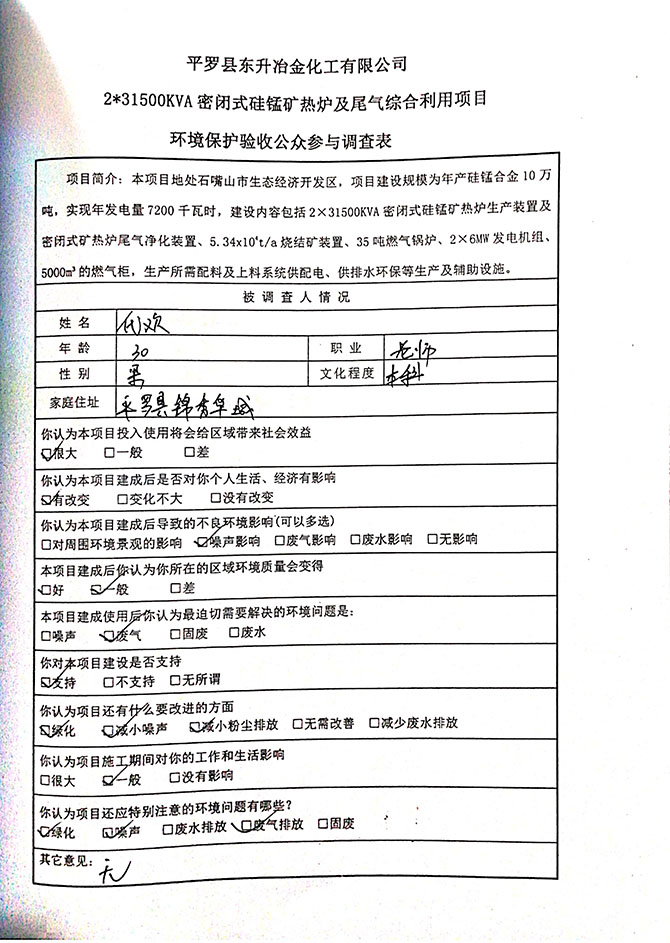 平罗县东升冶金化工有限公司
2*31500KVA 密闭式硅锰矿热炉及尾气综合利用项目
环境保护验收公众参与调查表
项目简介：本项目地处石嘴山市生态经济开发区，项目建设规模为年产硅锰合金 10 万
吨，实现年发电量 7200 千瓦时，建设内容包括 2×31500KVA 密闭式硅锰矿热炉生产装置及
密闭式矿热炉尾气净化装置、5.34x10⁴t/a 烧结矿装置、35 吨燃气锅炉、2×6MW 发电机组、
5000m³ 的燃气柜，生产所需配料及上料系统供配电、供排水环保等生产及辅助设施。
被调查人情况
姓名 代欢
年龄 30 职业 老师
性别 男 文化程度 本科
家庭住址 平罗县锦秀
你认为本项目投入使用将会给区域带来社会效益
☑很大 □一般 □差
你认为本项目建成后是否对你个人生活、经济有影响
☑有改变 □变化不大 □没有改变
你认为本项目建成后导致的不良环境影响(可以多选)
□对周围环境景观的影响 ☑噪声影响 □废气影响 □废水影响 □无影响
本项目建成后你认为你所在的区域环境质量会变得
☑好 ☑一般 □差
本项目建成使用后你认为最迫切需要解决的环境问题是：
□噪声 ☑废气 □固废 □废水
你对本项目建设是否支持
☑支持 □不支持 □无所谓
你认为项目还有什么要改进的方面
☑绿化 ☑减小噪声 ☑减小粉尘排放 □无需改善 □减少废水排放
你认为项目施工期间对你的工作和生活影响
□很大 ☑一般 □没有影响
你认为项目还应特别注意的环境问题有哪些？
☑绿化 ☑噪声 □废水排放 ☑废气排放 □固废
其它意见： 无